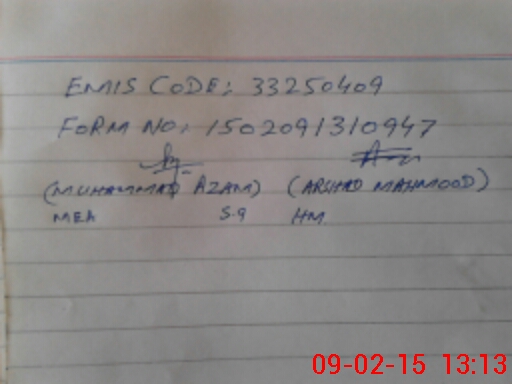 EMIS CODE: 33250409
FORM NO: 1502091310947
(MUHAMMAD AZAM) (ARSHAD MAHMOOD)
MEA S.9 HM
09-02-15 13:13